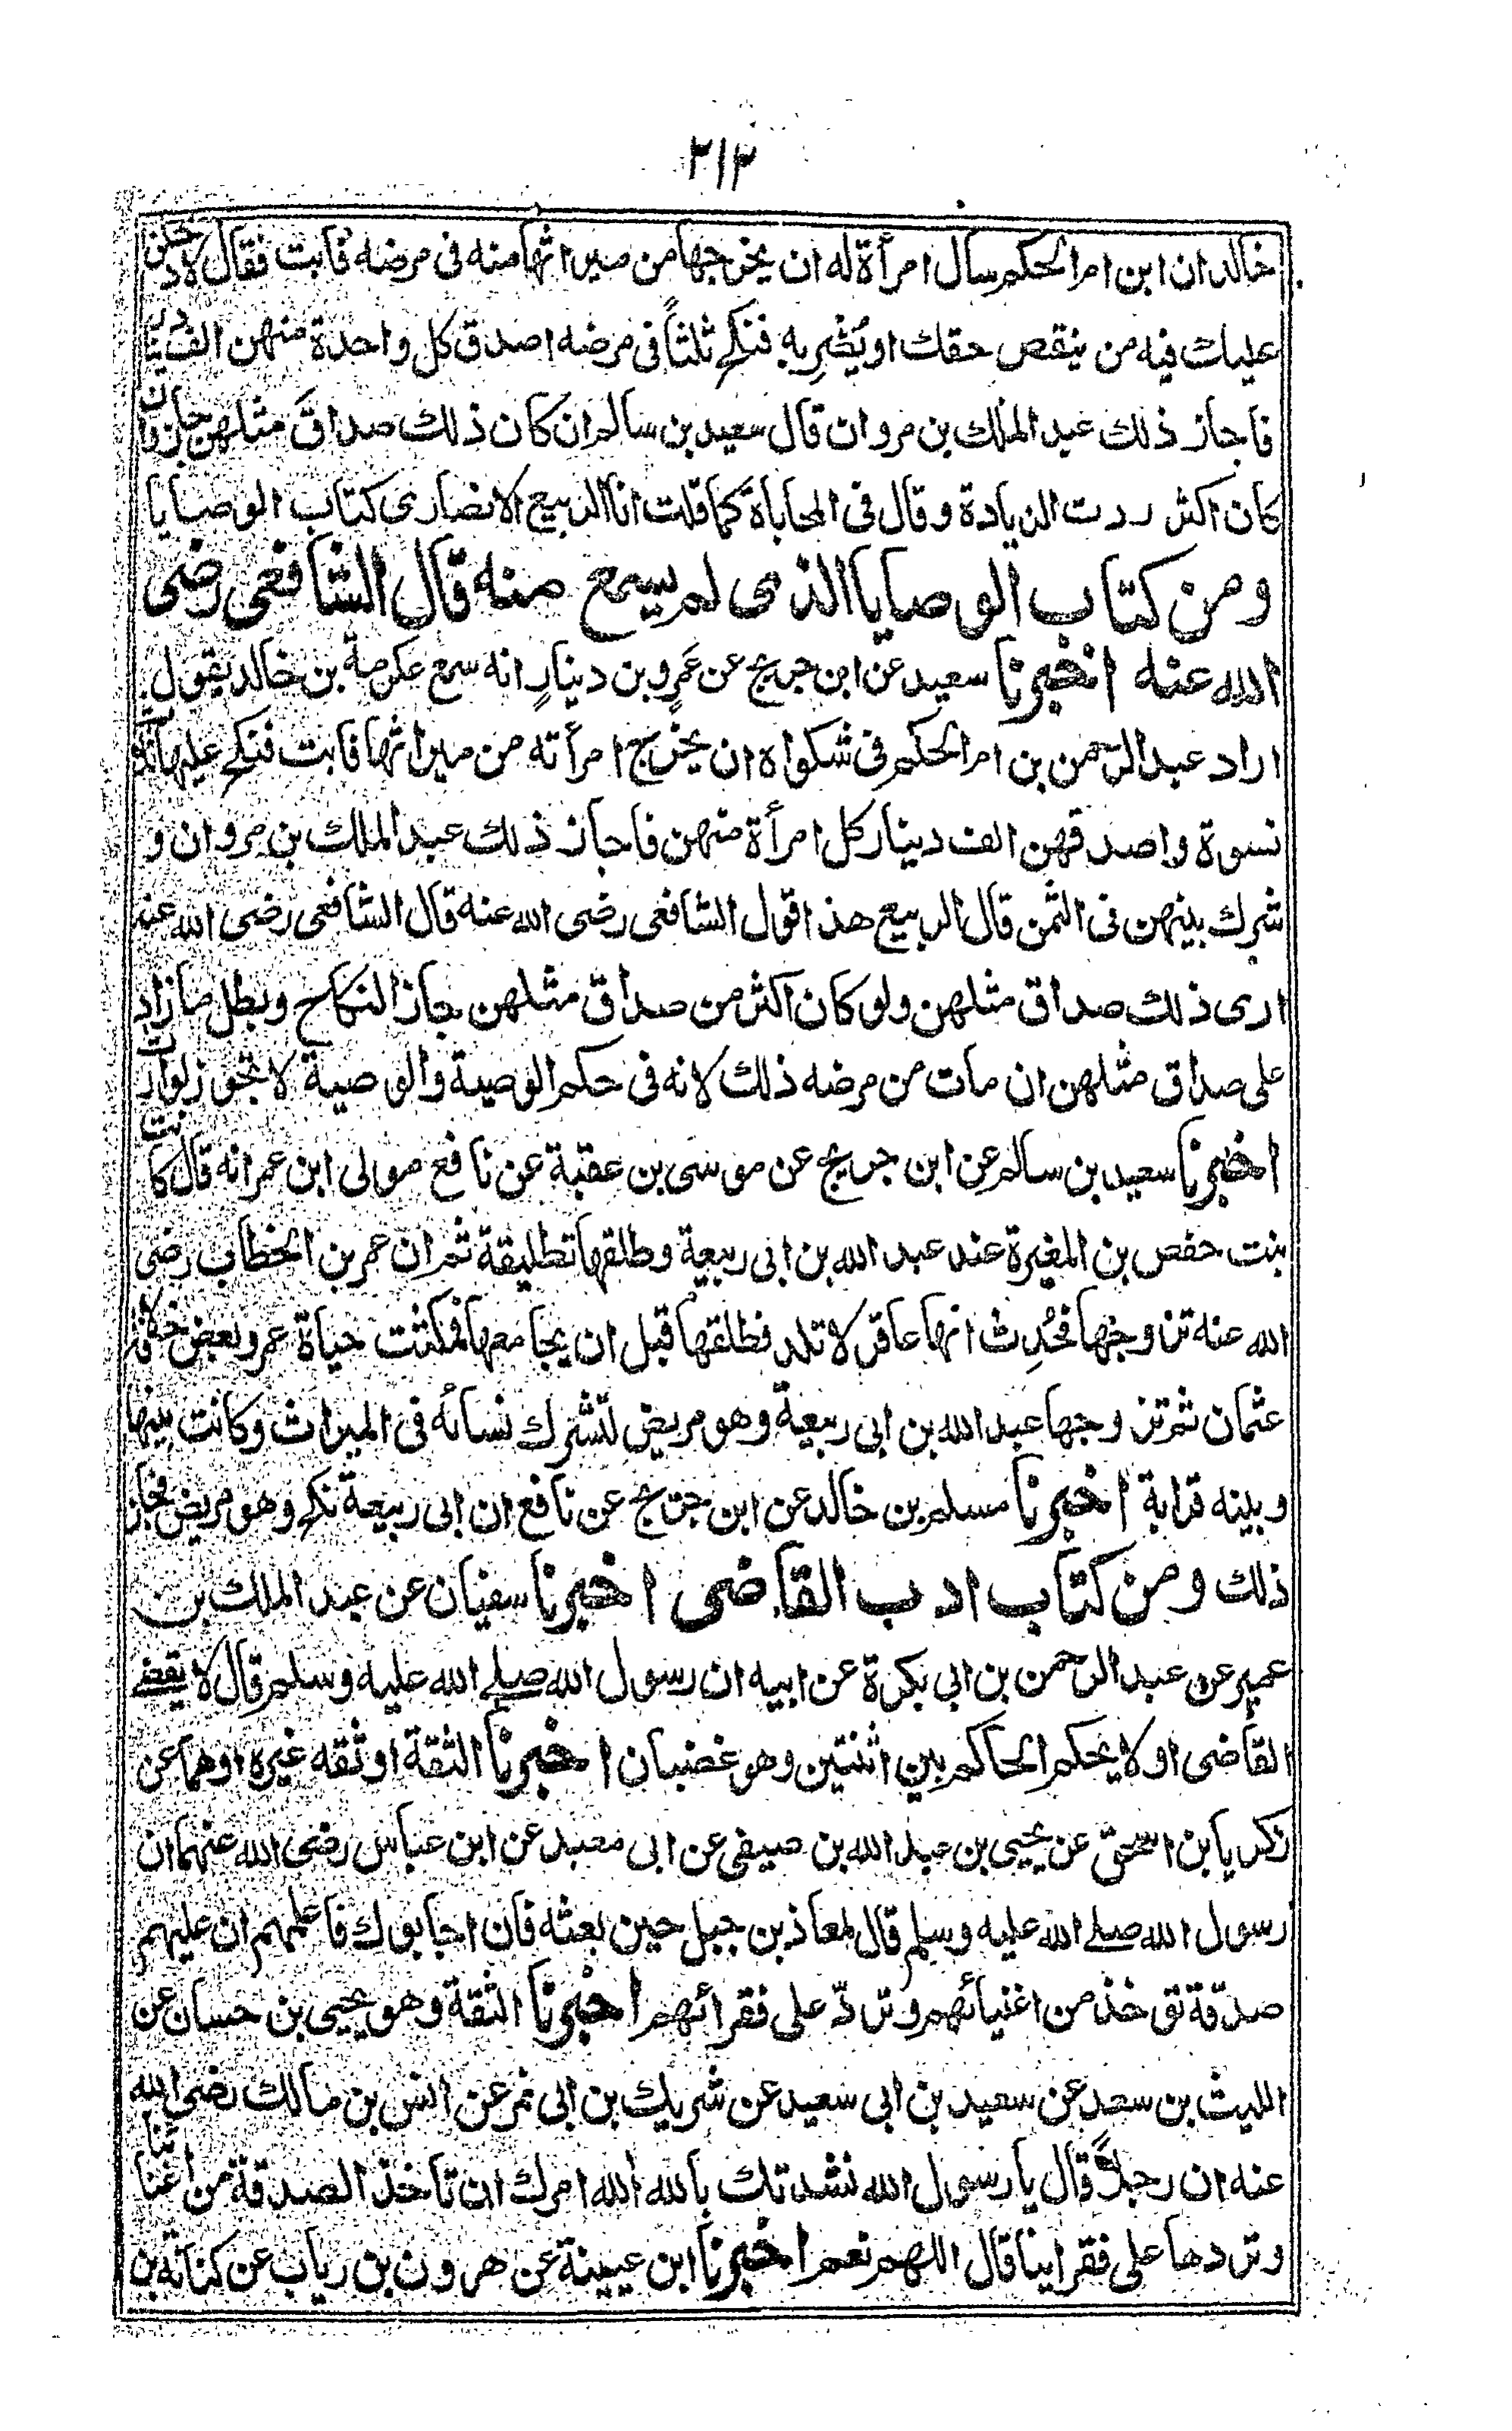 ٣١٣
خالد ان ابن ام الحكم سال امرأة له ان يخرجها من ميراثها منه فى مرضه فابت فقال لادخلن
عليك فيه من ينقص حقك او يُضِر به فنكح ثلثاً فى مرضه اصدق كل واحدة منهن الف دينار
فاجاز ذلك عبد الملك بن مروان قال سعيد بن سالم ان كان ذلك صداقَ مثلهن جاز وان
كان اكثر ردت الزيادة وقال فى المحاباة كما قلت انا الربيع الانصارى كتاب الوصايا
ومن كتاب الوصايا الذى لم يسمع منه قال الشافعى رضى
الله عنه اخبرنا سعيد عن ابن جريج عن عَمرٍو بن دينارٍ انه سمع عكرمة بن خالد يقول
اراد عبد الرحمن بن ام الحكم فى شكواه ان يخرج امرأته من ميراثها فابت فنكح عليها ثلث
نسوة واصدقهن الف دينار كل امرأة منهن فاجاز ذلك عبد الملك بن مروان و
شرك بينهن فى الثمن قال الربيع هذا قول الشافعى رضى الله عنه قال الشافعى رضى الله عنه
ارى ذلك صداق مثلهن ولو كان اكثر من صداق مثلهن جاز النكاح وبطل ما زاد
على صداق مثلهن ان مات من مرضه ذلك لانه فى حكم الوصية والوصية لا تجوز لوارث
اخبرنا سعيد بن سالم عن ابن جريج عن موسى بن عقبة عن نافع مولى ابن عمر انه قال كانت
بنت حفص بن المغيرة عند عبد الله بن ابى ربيعة وطلقها تطليقة ثم ان عمر بن الخطاب رضى
الله عنه تزوجها فحُدِث انها عاقر لا تلد فطلقها قبل ان يجامعها فمكثت حياة عمر وبعض خلافة
عثمان ثم تزوجها عبد الله بن ابى ربيعة وهو مريض لتشرك نسائه فى الميراث وكانت بينها
وبينه قرابة اخبرنا مسلم بن خالد عن ابن جريج عن نافع ان ابى ربيعة نكح وهو مريض فجاز
ذلك ومن كتاب ادب القاضى اخبرنا سفيان عن عبد الملك بن
عمير عن عبد الرحمن بن ابى بكرة عن ابيه ان رسول الله صلے الله عليه وسلم قال لا يقضے
القاضى او لا يحكم الحاكم بين اثنتين وهو غضبان اخبرنا الثقة او ثقه غيره او هما عن
زكريا بن اسحق عن يحيى بن عبد الله بن صيفى عن ابى معبد عن ابن عباس رضى الله عنهما ان
رسول الله صلے الله عليه وسلم قال لمعاذ بن جبل حين بعثه فان اجابوك فاعلمهم ان عليهم
صدقة تؤخذ من اغنيائهم وتردّ على فقرائهم اخبرنا الثقة وهو يحيى بن حسان عن
الليث بن سعد عن سعيد بن ابى سعيد عن شريك بن ابى نمر عن انس بن مالك رضى الله
عنه ان رجلاً قال يا رسول الله نشدتك بالله أالله امرك ان تاخذ الصدقة من اغنيائنا
وتردها على فقراينا قال اللهم نعم اخبرنا ابن عيينة عن هرون بن رياب عن كنانة بن